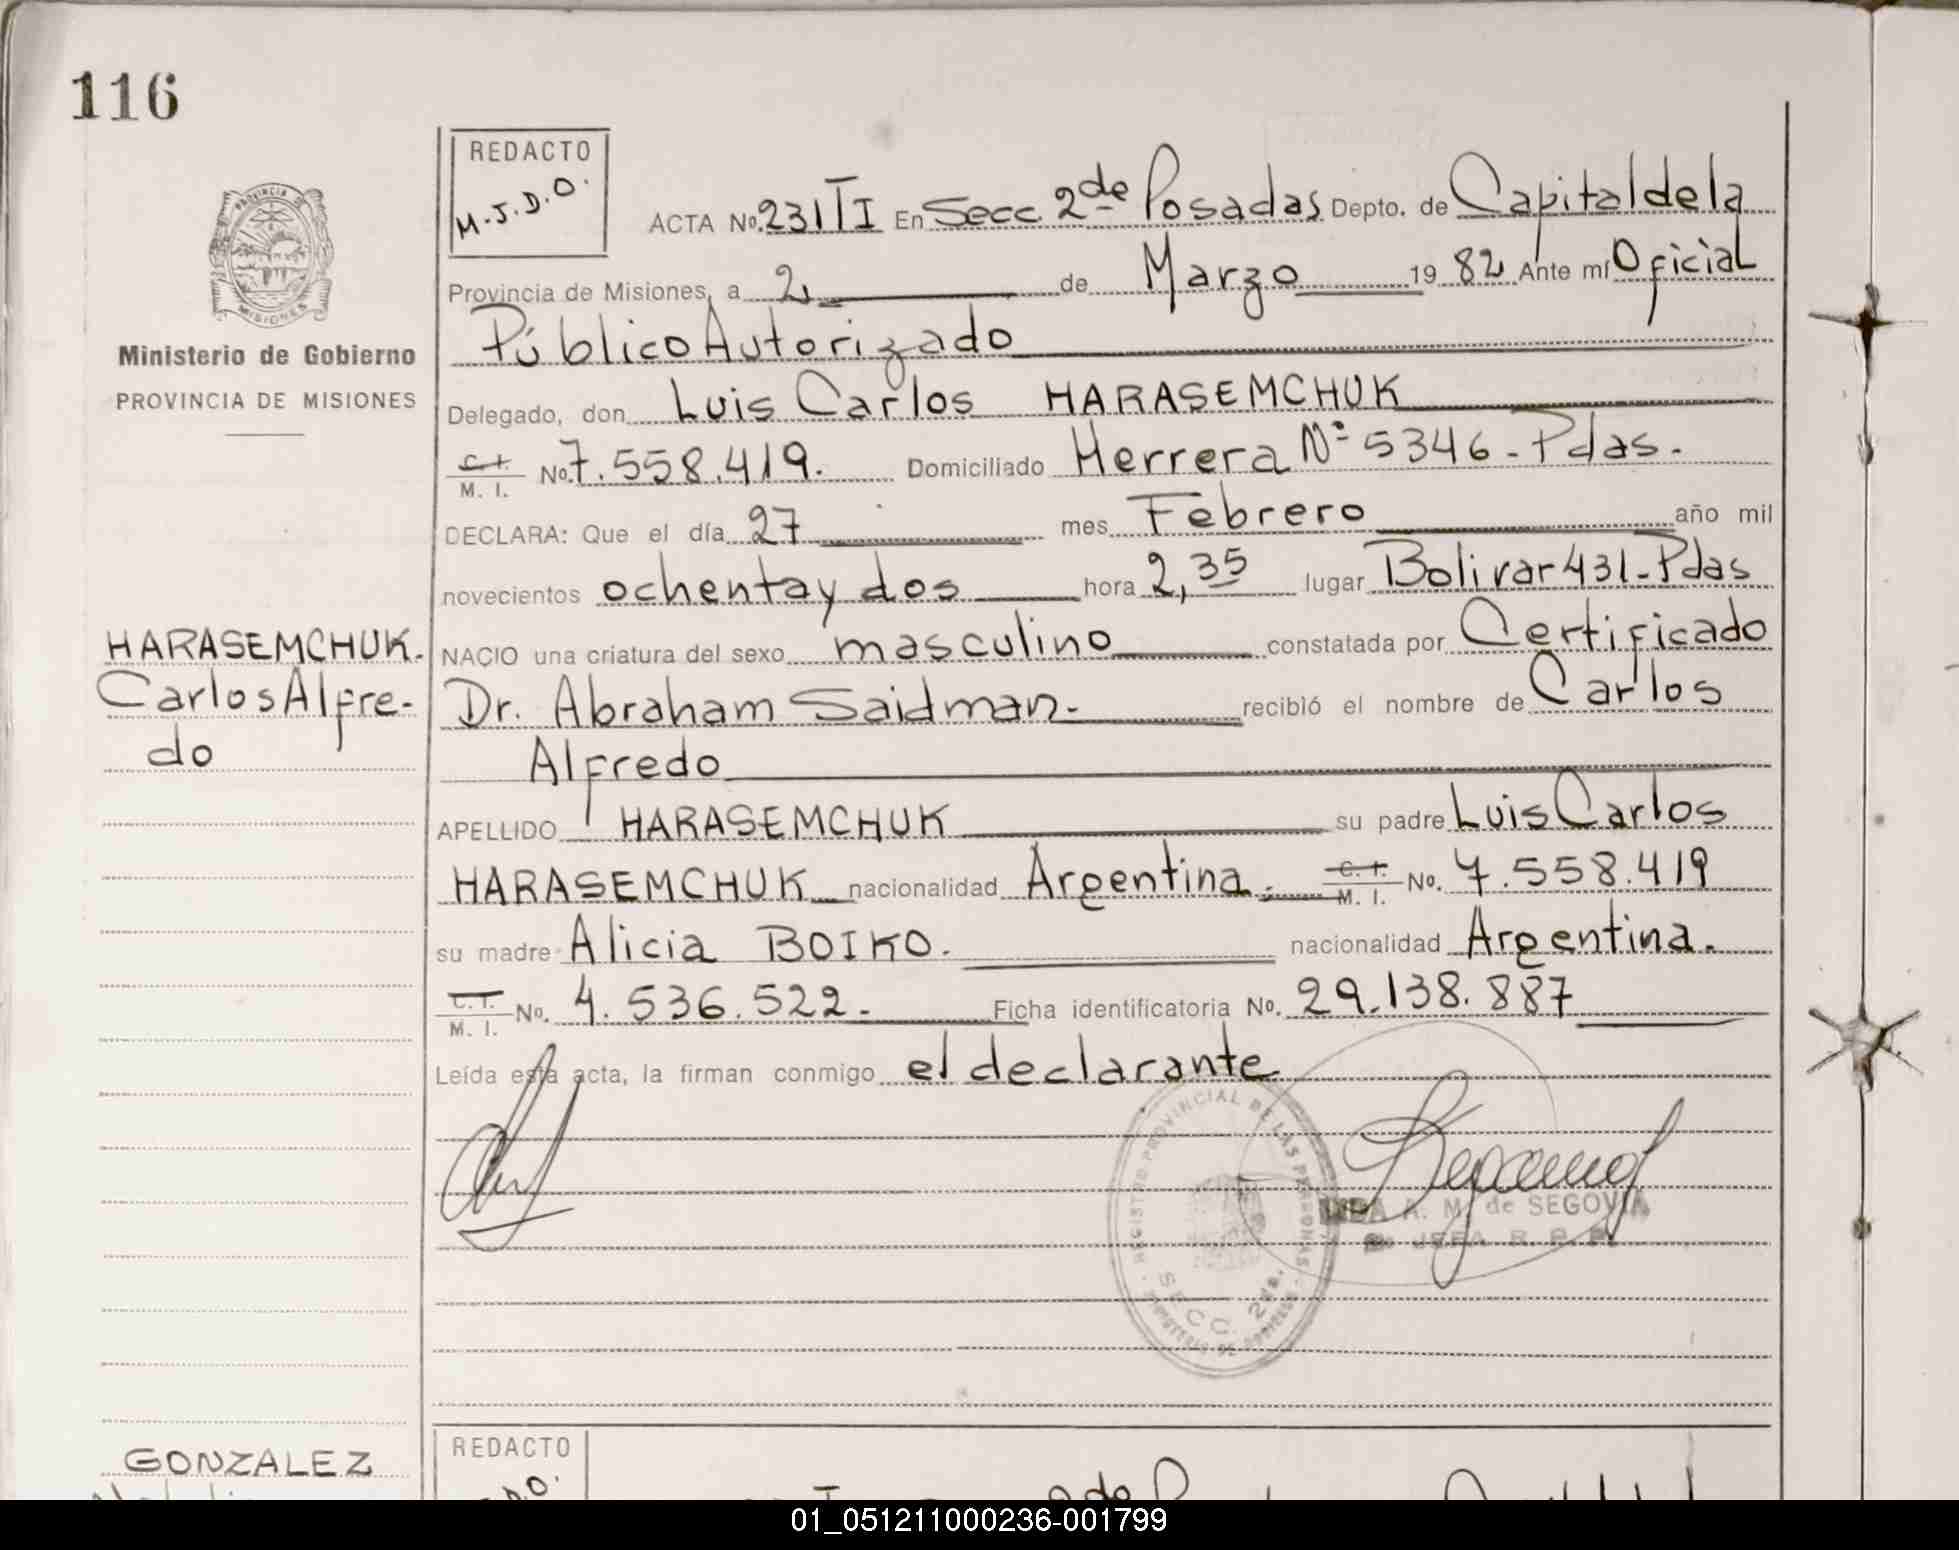 116
REDACTO
M.J.D.O.
PROVINCIA DE
MISIONES
Ministerio de Gobierno
PROVINCIA DE MISIONES
ACTA No. 231 T I En Secc. 2da Posadas Depto. de Capital de la
Provincia de Misiones, a 2 de Marzo 19 82 Ante mí Oficial
Público Autorizado
Delegado, don Luis Carlos HARASEMCHUK
C.I. M. I. No. 7.558.419. Domiciliado Herrera Nº 5346-Pdas.
DECLARA: Que el día 27 mes Febrero año mil
novecientos ochenta y dos hora 2,35 lugar Bolivar 431-Pdas
HARASEMCHUK.
Carlos Alfre-
do
NACIO una criatura del sexo masculino constatada por Certificado
Dr. Abraham Saidman- recibió el nombre de Carlos
Alfredo
APELLIDO HARASEMCHUK su padre Luis Carlos
HARASEMCHUK nacionalidad Argentina. C.I. M. I. No. 7.558.419
su madre Alicia BOIKO. nacionalidad Argentina.
C.I. M. I. No. 4.536.522.- Ficha identificatoria No. 29.138.887
Leída esta acta, la firman conmigo el declarante
REGISTRO PROVINCIAL DE LAS PERSONAS
SECC. 2da.
MINISTERIO DE GOBIERNO
A. M. de SEGOVIA
JEFA R. P. P.
GONZALEZ
REDACTO
D.O.
01_051211000236-001799